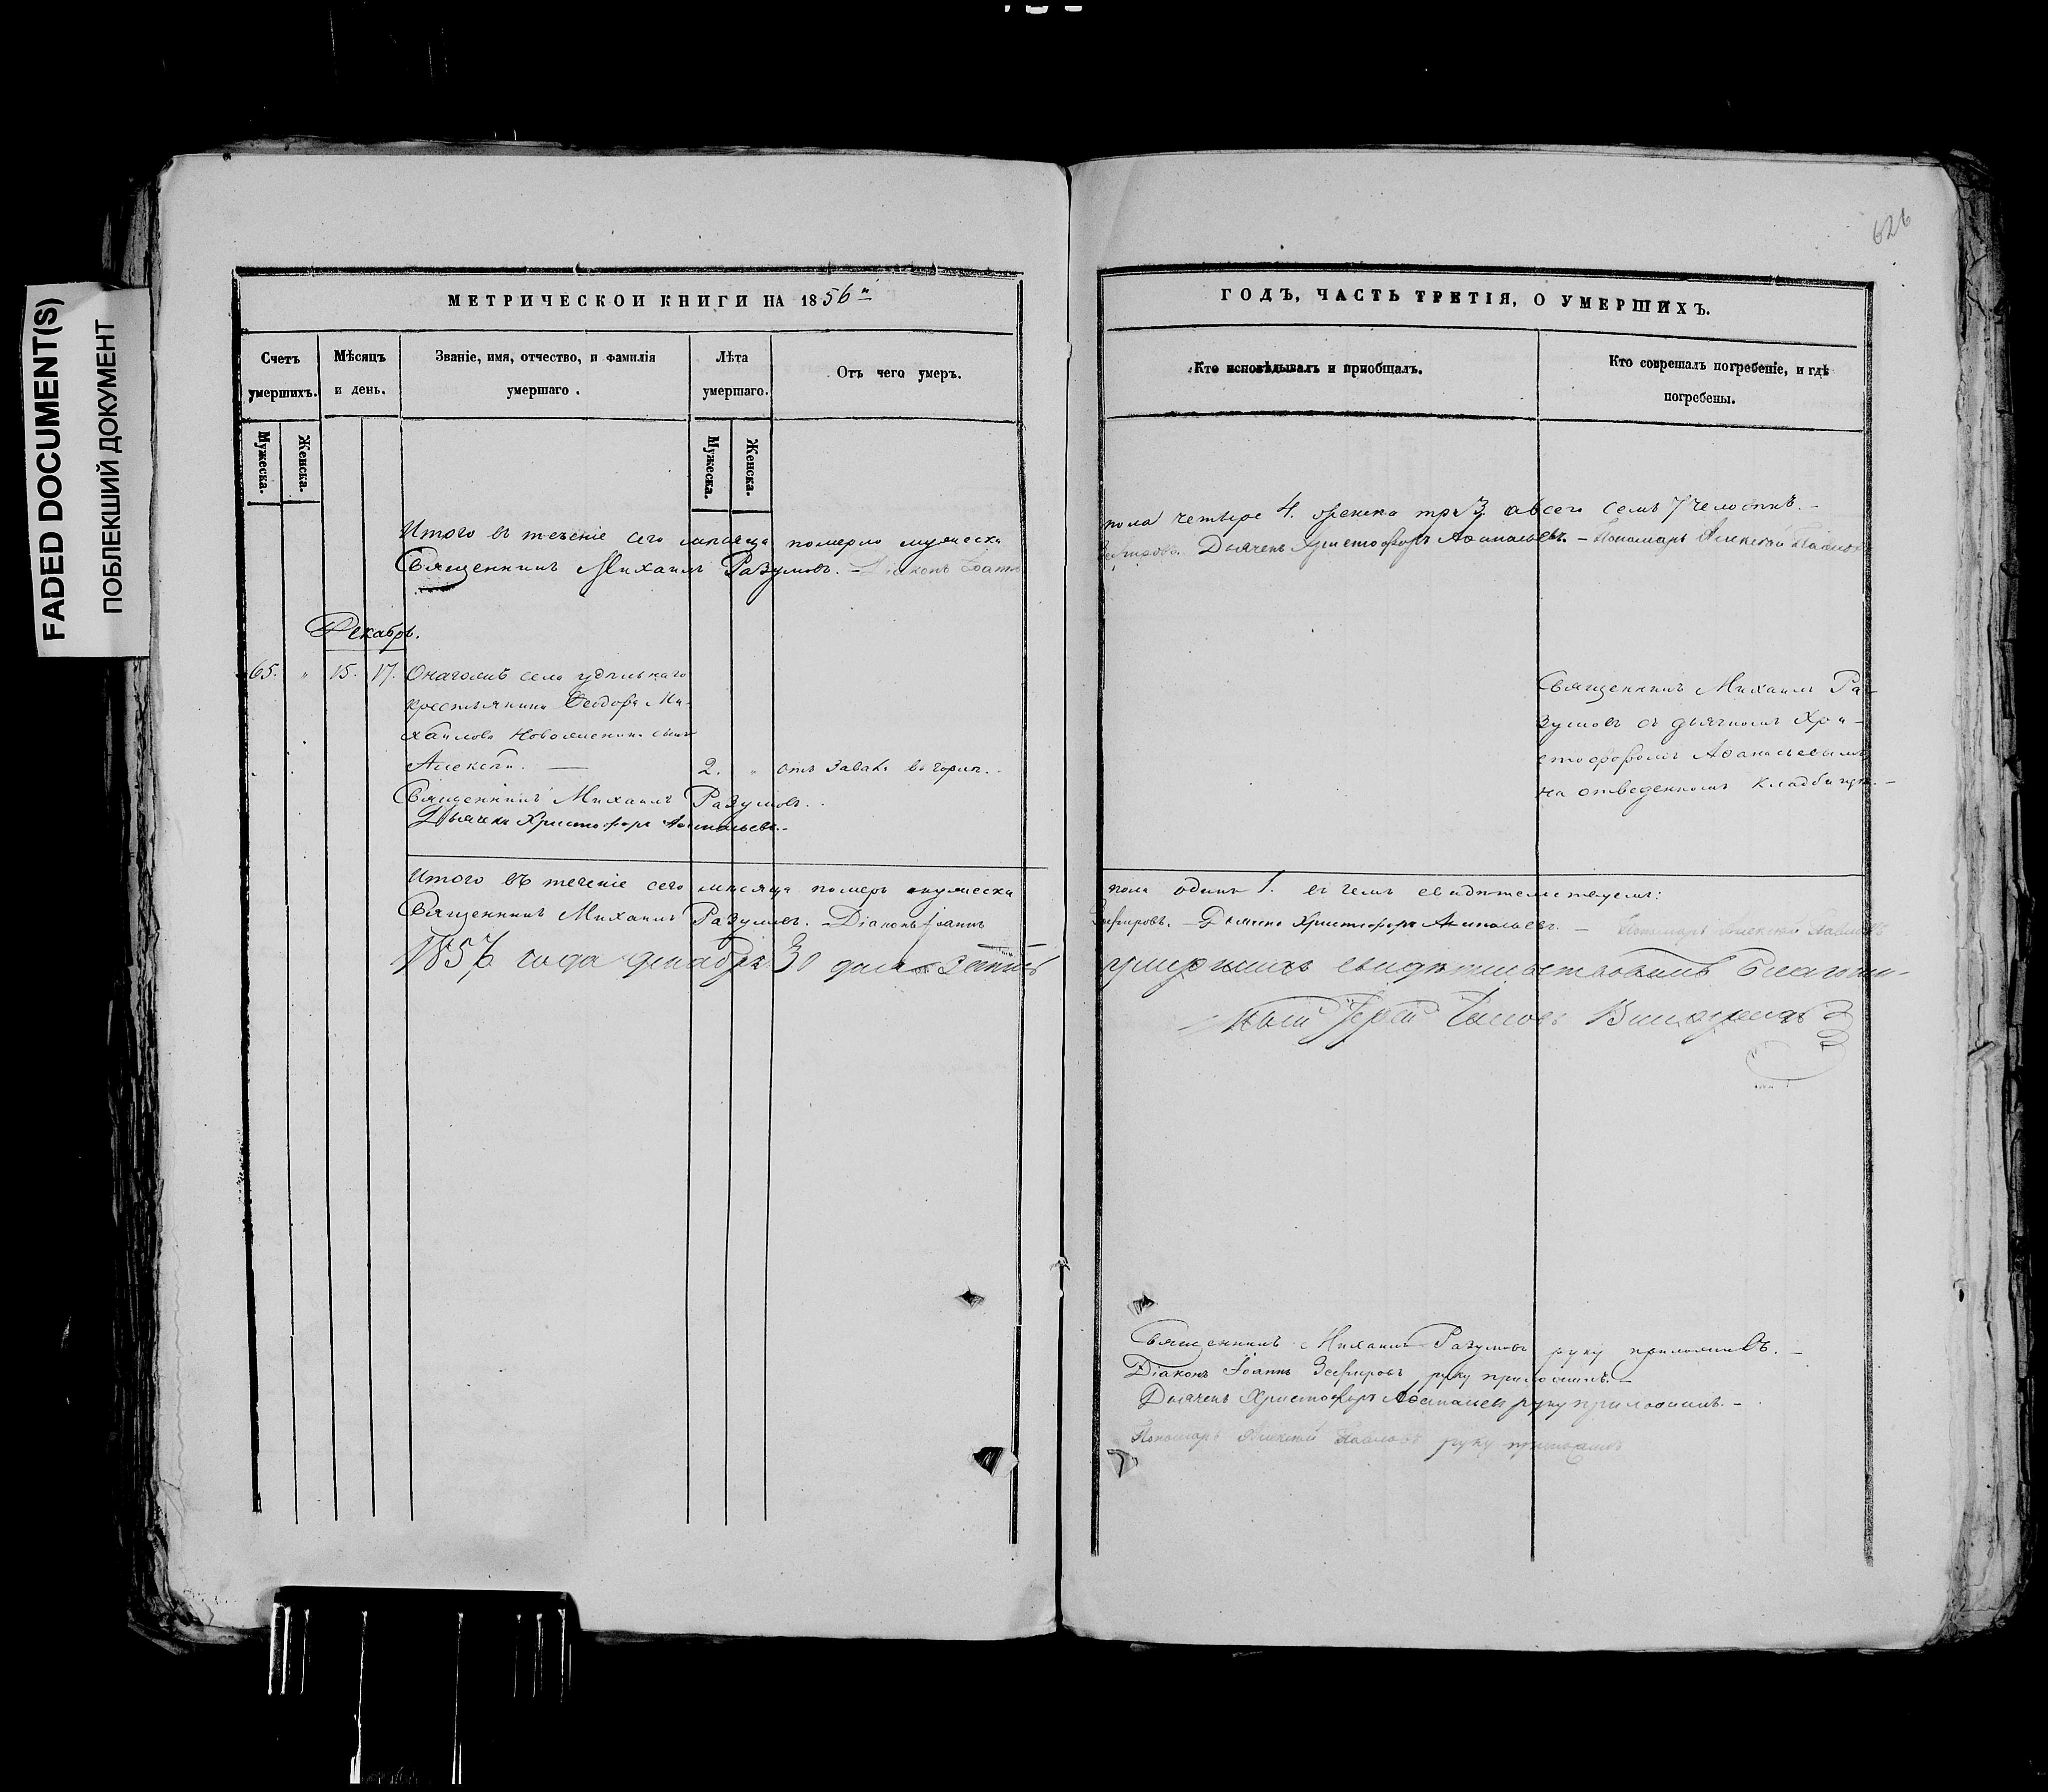 FADED DOCUMENT(S)
ПОБЛЕКШИЙ ДОКУМЕНТ
626
МЕТРИЧЕСКОИ КНИГИ НА 1856й
Счетъ умершихъ.
Мѣсяцъ и день.
Званіе, имя, отчество, и фамилія
умершаго.
Лѣта умершаго.
Отъ чего умеръ.
Мужеска.
Женска.
Мужеска.
Женска.
Итого въ теченіе сего мѣсяца померло мужеска
Священникъ Михаилъ Разумовъ. – Діаконъ Іоаннъ
Декабрь.
65. " 15. 17. села удѣльнаго
крестьянина Ѳеодора Ми-
хайлова сынъ
Алексѣй. — 2. " отъ
Священникъ Михаилъ Разумовъ.
Дьячекъ Христофоръ Аѳанасьевъ.
Итого въ теченіе сего мѣсяца померъ мужеска
Священникъ Михаилъ Разумовъ. – Діаконъ Іоаннъ
года декабря 30 дня
ГОДЪ, ЧАСТЬ ТРЕТІЯ, О УМЕРШИХЪ.
Кто исповѣдывалъ и приобщалъ.
Кто соврешалъ погребеніе, и гдѣ
погребены.
пола четыре 4. женска три 3. а всего семь 7 человѣкъ. –
Зефировъ. Дьячекъ Христофоръ Аѳанасьевъ. – Пономарь Алексѣй Павловъ
Священникъ Михаилъ Ра-
зумовъ съ дьячкомъ Хри-
стофоромъ Аѳанасьевымъ
на отведенномъ кладбищѣ. –
пола одинъ 1. въ чемъ свидѣтельствуемъ:
Зефировъ. – Дьячекъ Христофоръ Аѳанасьевъ. – Пономарь Алексѣй Павловъ
умершихъ свидѣтельствовалъ Благочин-
ный Іерей
Священникъ Михаилъ Разумовъ руку приложилъ. –
Діаконъ Іоаннъ Зефировъ руку приложилъ. –
Дьячекъ Христофоръ Аѳанасьевъ руку приложилъ. –
Пономарь Алексѣй Павловъ руку приложилъ